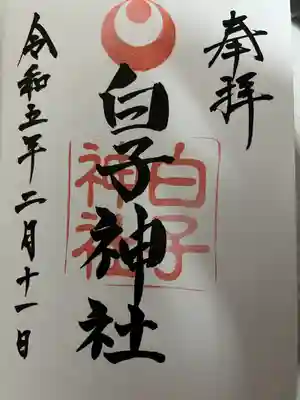 奉拝
白子神社
白子
神社
令和五年二月十一日